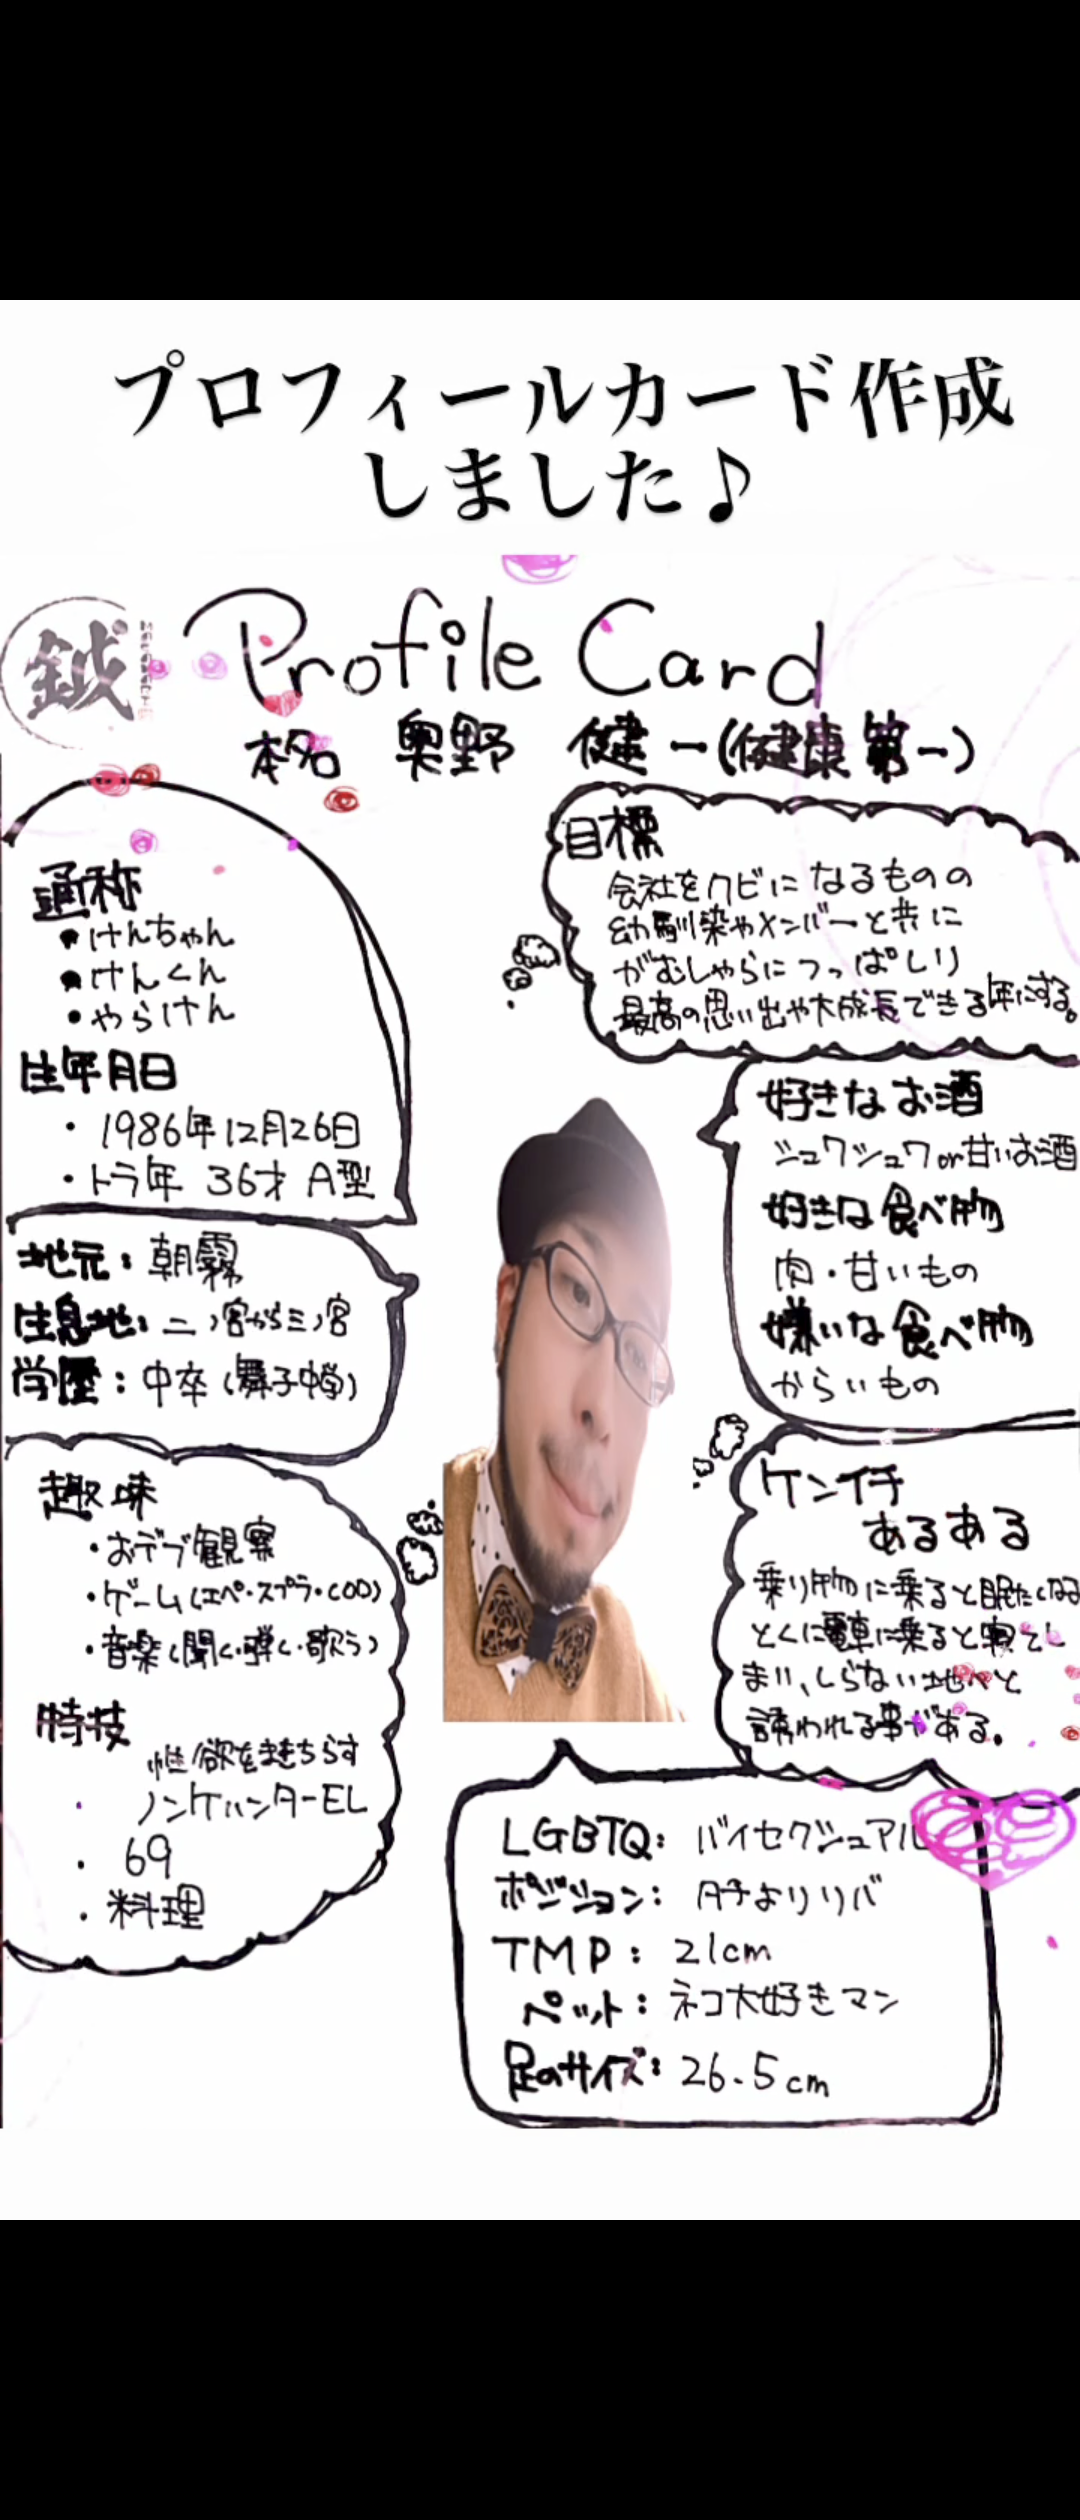 プロフィールカード作成
しました♪
鉞
Profile Card
本名 奥野 健一(健康第一)
通称
・けんちゃん
・けんくん
・やらけん
生年月日
・1986年12月26日
・トラ年 36才 A型
地元:朝霧
生息地:二ノ宮から三ノ宮
学歴:中卒(舞子中学)
趣味
・おデブ観察
・ゲーム(エペ・スプラ・COD)
・音楽(聞く・弾く・歌う)
特技
性欲をまきちらす
・ノンケハンターEL
・69
・料理
目標
会社をクビになるものの
幼馴染やメンバーと共に
がむしゃらにつっぱしり
最高の思い出や大成長できる年にする。
好きなお酒
シュワシュワor甘いお酒
好きな食べ物
肉・甘いもの
嫌いな食べ物
からいもの
ケンイチ
あるある
乗り物に乗ると眠たくなる
とくに電車に乗ると寝てし
まい、しらない地へと
誘われる事がある。
LGBTQ:バイセクシュアル
ポジション:タチよりリバ
TMP:21cm
ペット:ネコ大好きマン
足のサイズ:26.5cm